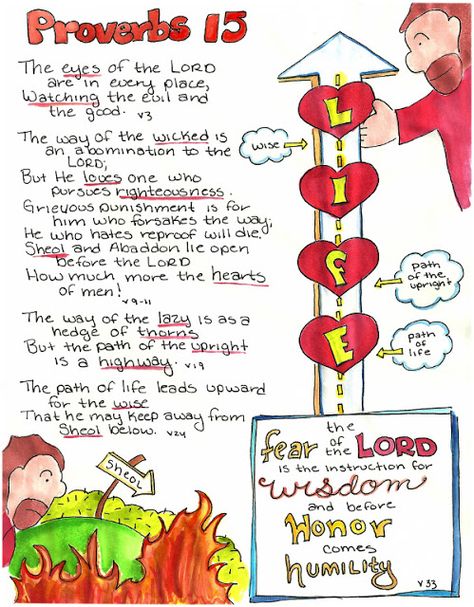 Proverbs 15
The eyes of the LORD
are in every place,
Watching the evil and
the good. v3
The way of the wicked is
an abomination to the
LORD;
But He loves one who
pursues righteousness.
Grievous punishment is for
him who forsakes the way;
He who hates reproof will die.
Sheol and Abaddon lie open
before the LORD
How much more the hearts
of men! v9-11
The way of the lazy is as a
hedge of thorns
But the path of the upright
is a highway. v19
The path of life leads upward
for the wise
That he may keep away from
Sheol below. v24
Sheol
L
I
F
E
wise
path
of the
upright
path
of life
the
fear of the LORD
is the instruction for
wisdom
and before
Honor
comes
humility
v33